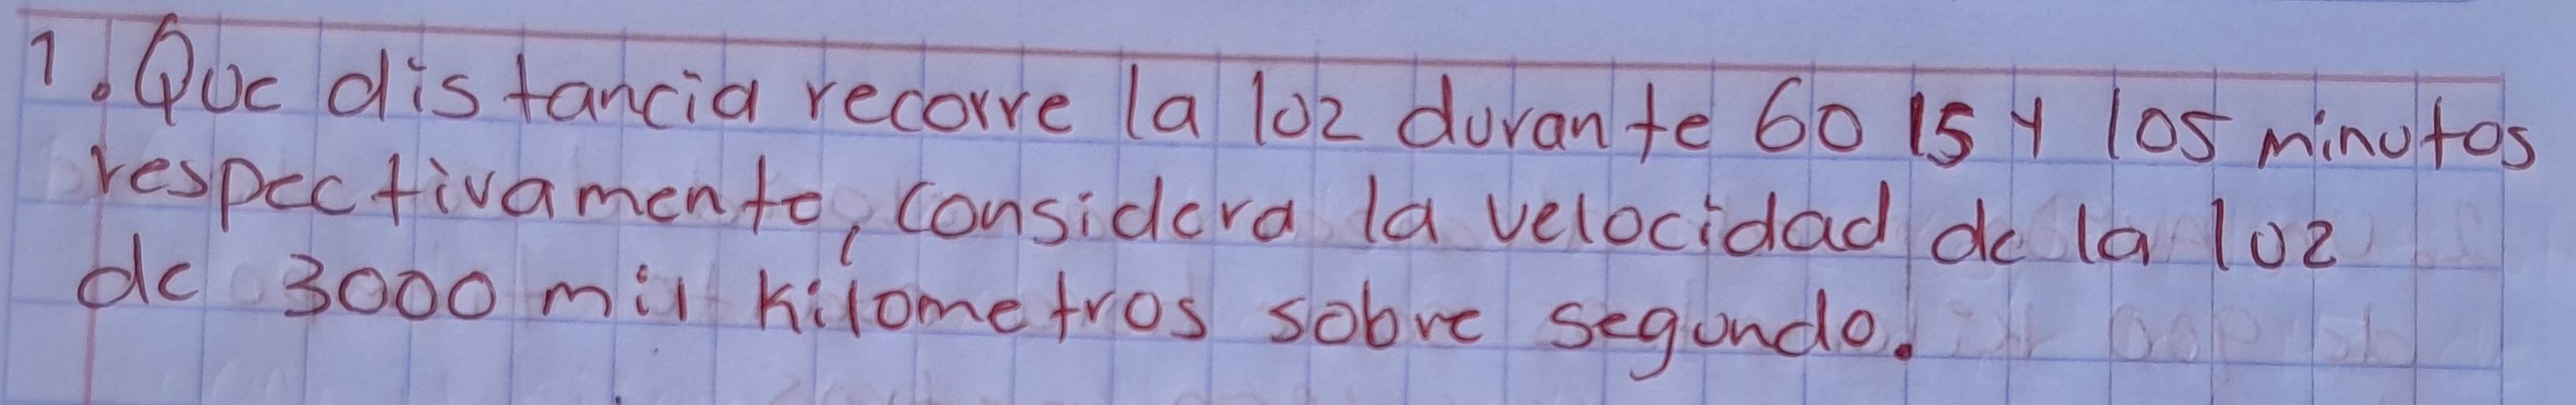 1. Que distancia recorre la luz durante 60 15 y 105 minutos
respectivamente, considera la velocidad de la luz
de 3000 mil kilometros sobre segundo.